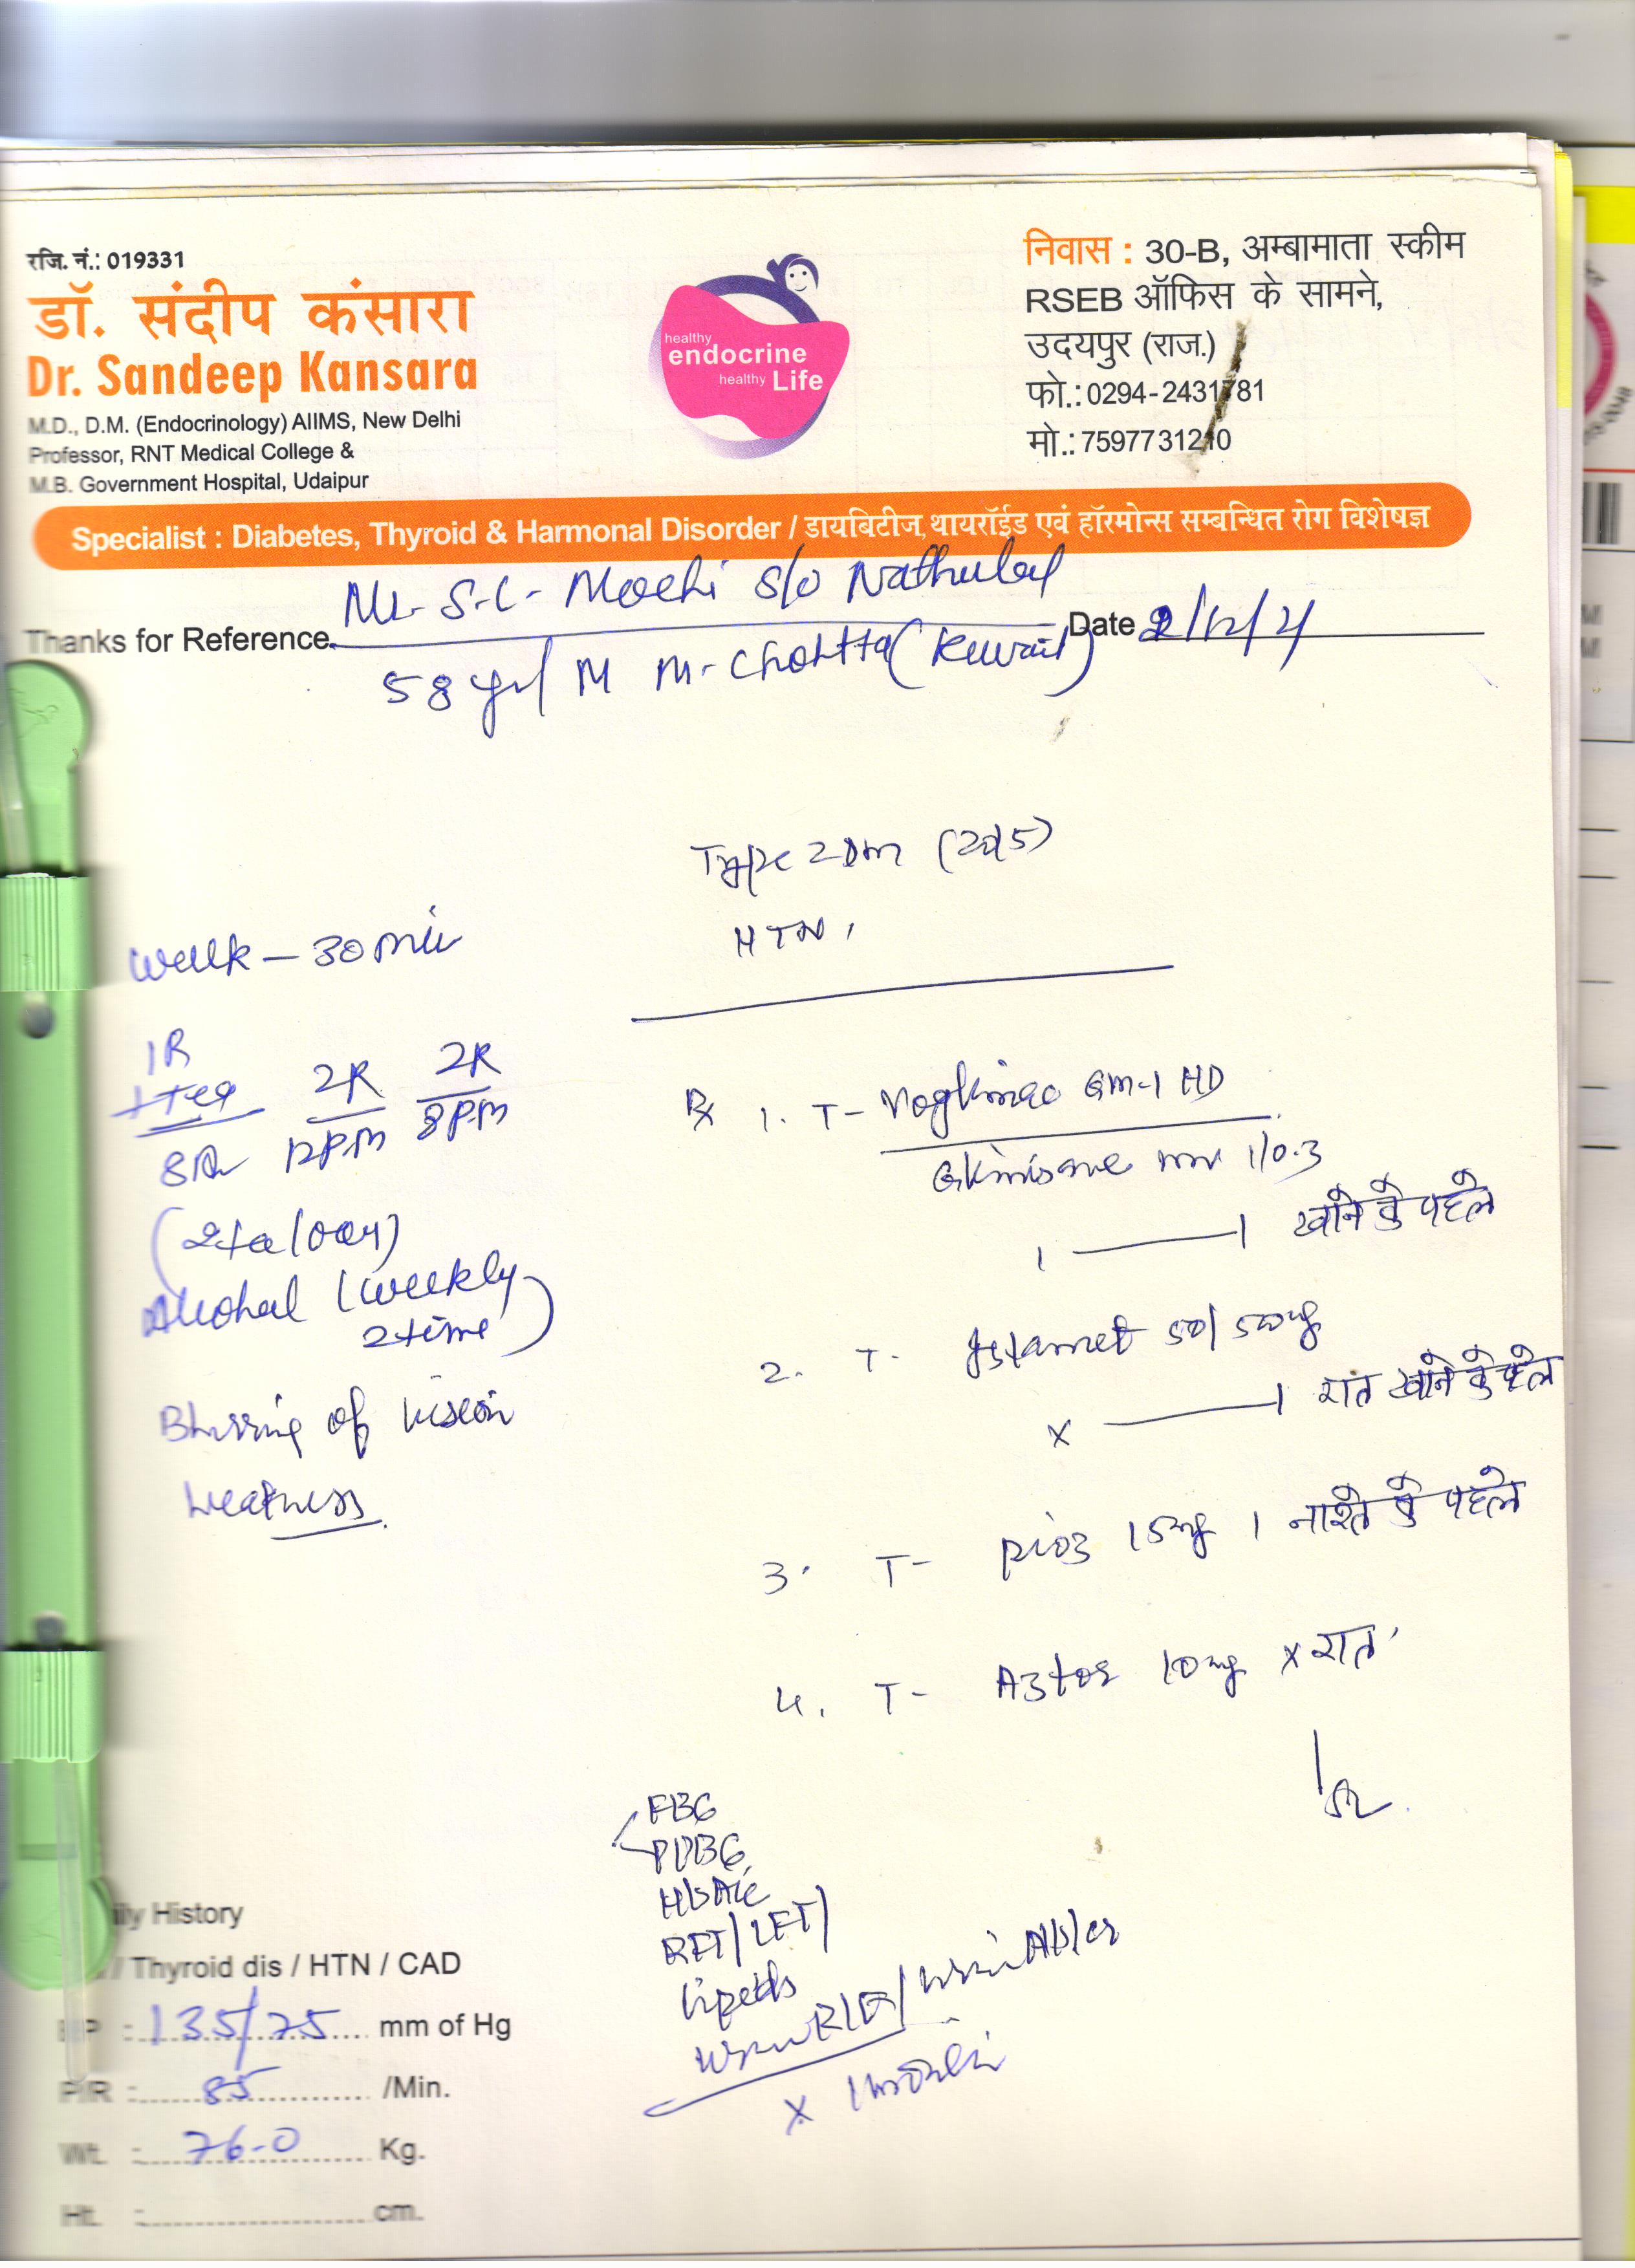 रजि. नं.: 019331
डॉ. संदीप कंसारा
Dr. Sandeep Kansara
M.D., D.M. (Endocrinology) AIIMS, New Delhi
Professor, RNT Medical College &
M.B. Government Hospital, Udaipur
healthy
endocrine
healthy Life
निवास : 30-B, अम्बामाता स्कीम
RSEB ऑफिस के सामने,
उदयपुर (राज.)
फो.: 0294-2431781
मो.: 7597731210
Specialist : Diabetes, Thyroid & Harmonal Disorder / डायबिटीज, थायरॉईड एवं हॉरमोन्स सम्बन्धित रोग विशेषज्ञ
Mr. S.C. Mochi s/o Nathulal
Thanks for Reference. Date
58 yr/ M (Kuwait)
Type 2 DM
HTN,
Walk - 30 min
1R
1 tea 2R 2R
12PM 8PM
Alcohol (weekly
2 time)
Blurring of vision
Weakness
Rx 1. T- GM-1 HD
1/0.3
1 — 1 खाने के पहले
2. T- Istamet 50/500mg
x — 1 रात खाने के पहले
3. T- Pioz 15mg 1 नाश्ते के पहले
4. T- Aztor 10mg x रात
FBG
PPBG
HbA1c
RFT/LFT/
Lipids
Urine R/E/ Urine Alb/cr
ily History
/ Thyroid dis / HTN / CAD
BP : 135/75 mm of Hg
P/R : 85 /Min.
Wt. : 76.0 Kg.
Ht. : cm.